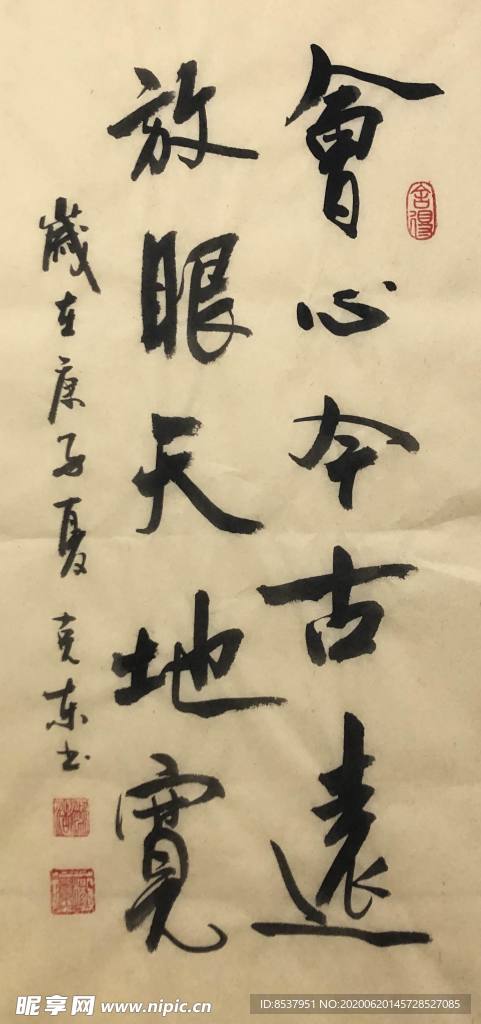 會心今古遠
放眼天地寬
歲在庚子夏 克東书
舍得
昵享网 www.nipic.cn
ID:8537951 NO:20200620145728527085